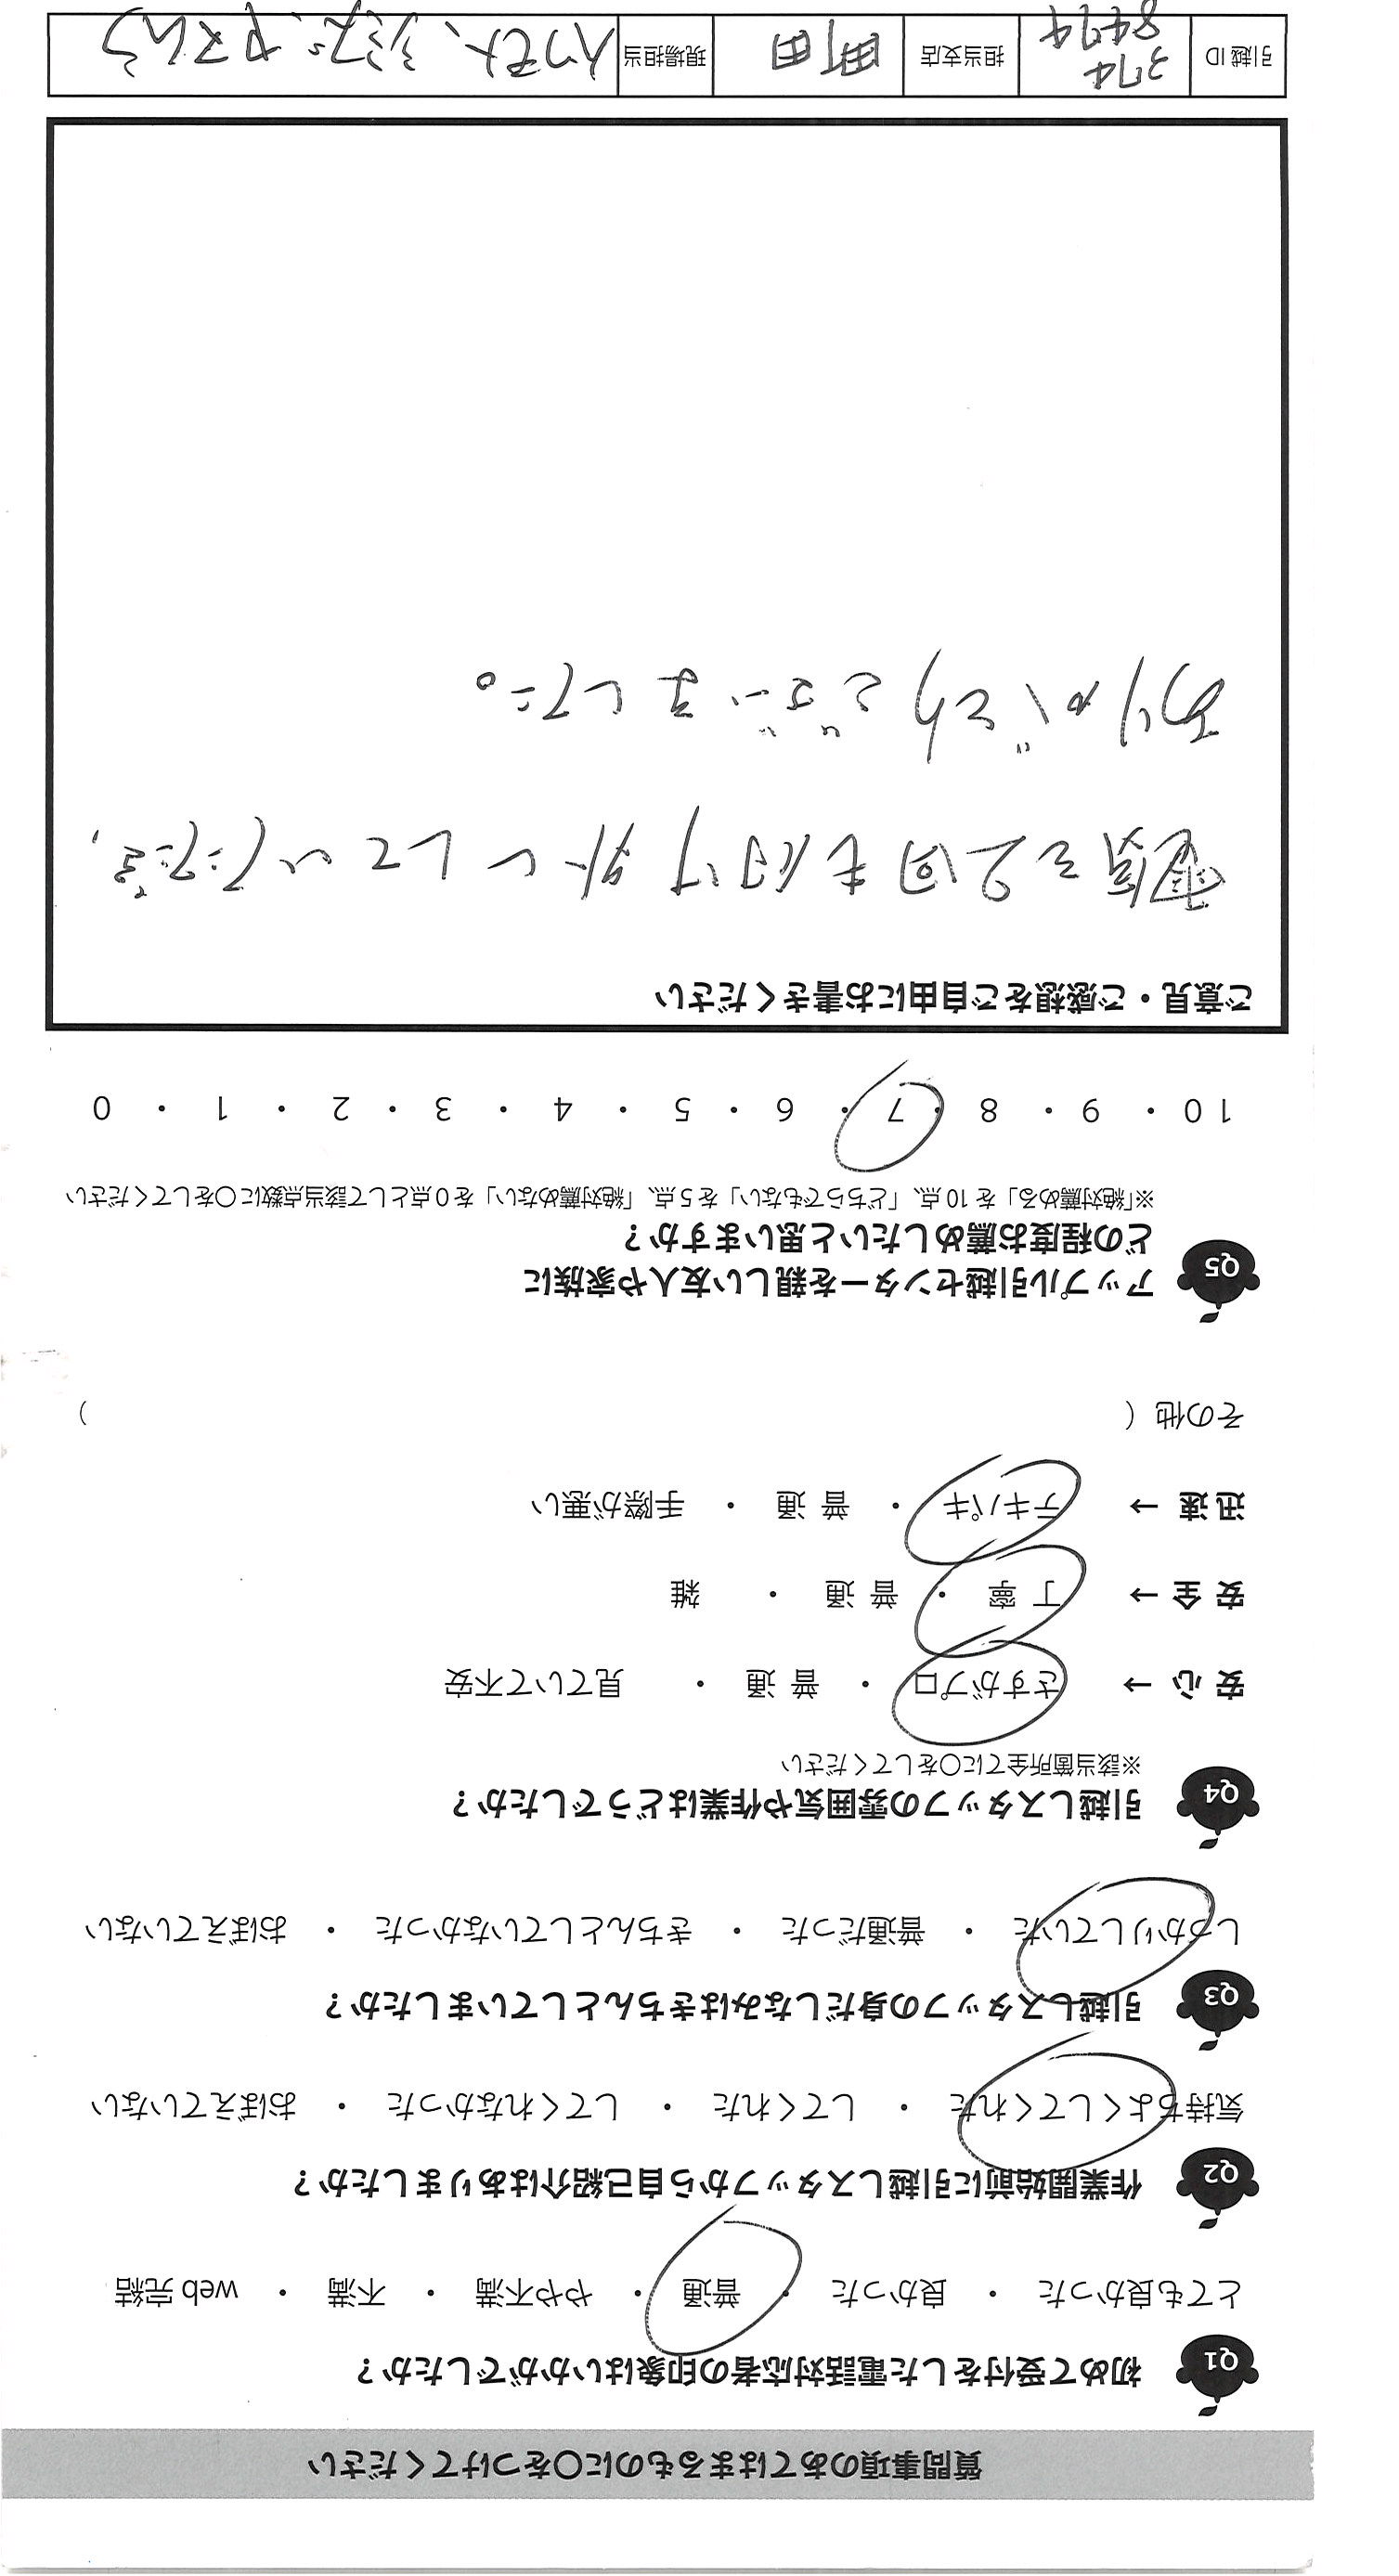 質問事項のあてはまるものに○をつけてください
Q1 初めて受付をした電話対応者の印象はいかがでしたか?
とても良かった ・ 良かった ・ 普通 ・ やや不満 ・ 不満 ・ web 完結
Q2 作業開始前に引越しスタッフから自己紹介はありましたか?
気持ちよくしてくれた ・ してくれた ・ してくれなかった ・ おぼえていない
Q3 引越しスタッフの身だしなみはきちんとしていましたか?
しっかりしていた ・ 普通だった ・ きちんとしていなかった ・ おぼえていない
Q4 引越しスタッフの雰囲気や作業はどうでしたか?
※該当箇所全てに○をしてください
安 心 → さすがプロ ・ 普 通 ・ 見ていて不安
安 全 → 丁 寧 ・ 普 通 ・ 雑
迅 速 → テキパキ ・ 普 通 ・ 手際が悪い
その他 ( )
Q5 アップル引越センターを親しい友人や家族に
どの程度お薦めしたいと思いますか?
※「絶対薦める」を 10 点、「どちらでもない」を 5 点、「絶対薦めない」を 0 点として該当点数に○をしてください
10 ・ 9 ・ 8 ・ 7 ・ 6 ・ 5 ・ 4 ・ 3 ・ 2 ・ 1 ・ 0
ご意見・ご感想をご自由にお書きください
を2回も付け外ししていただき、
ありがとうございました。
引越 ID 374 8474 担当支店 町田 現場担当